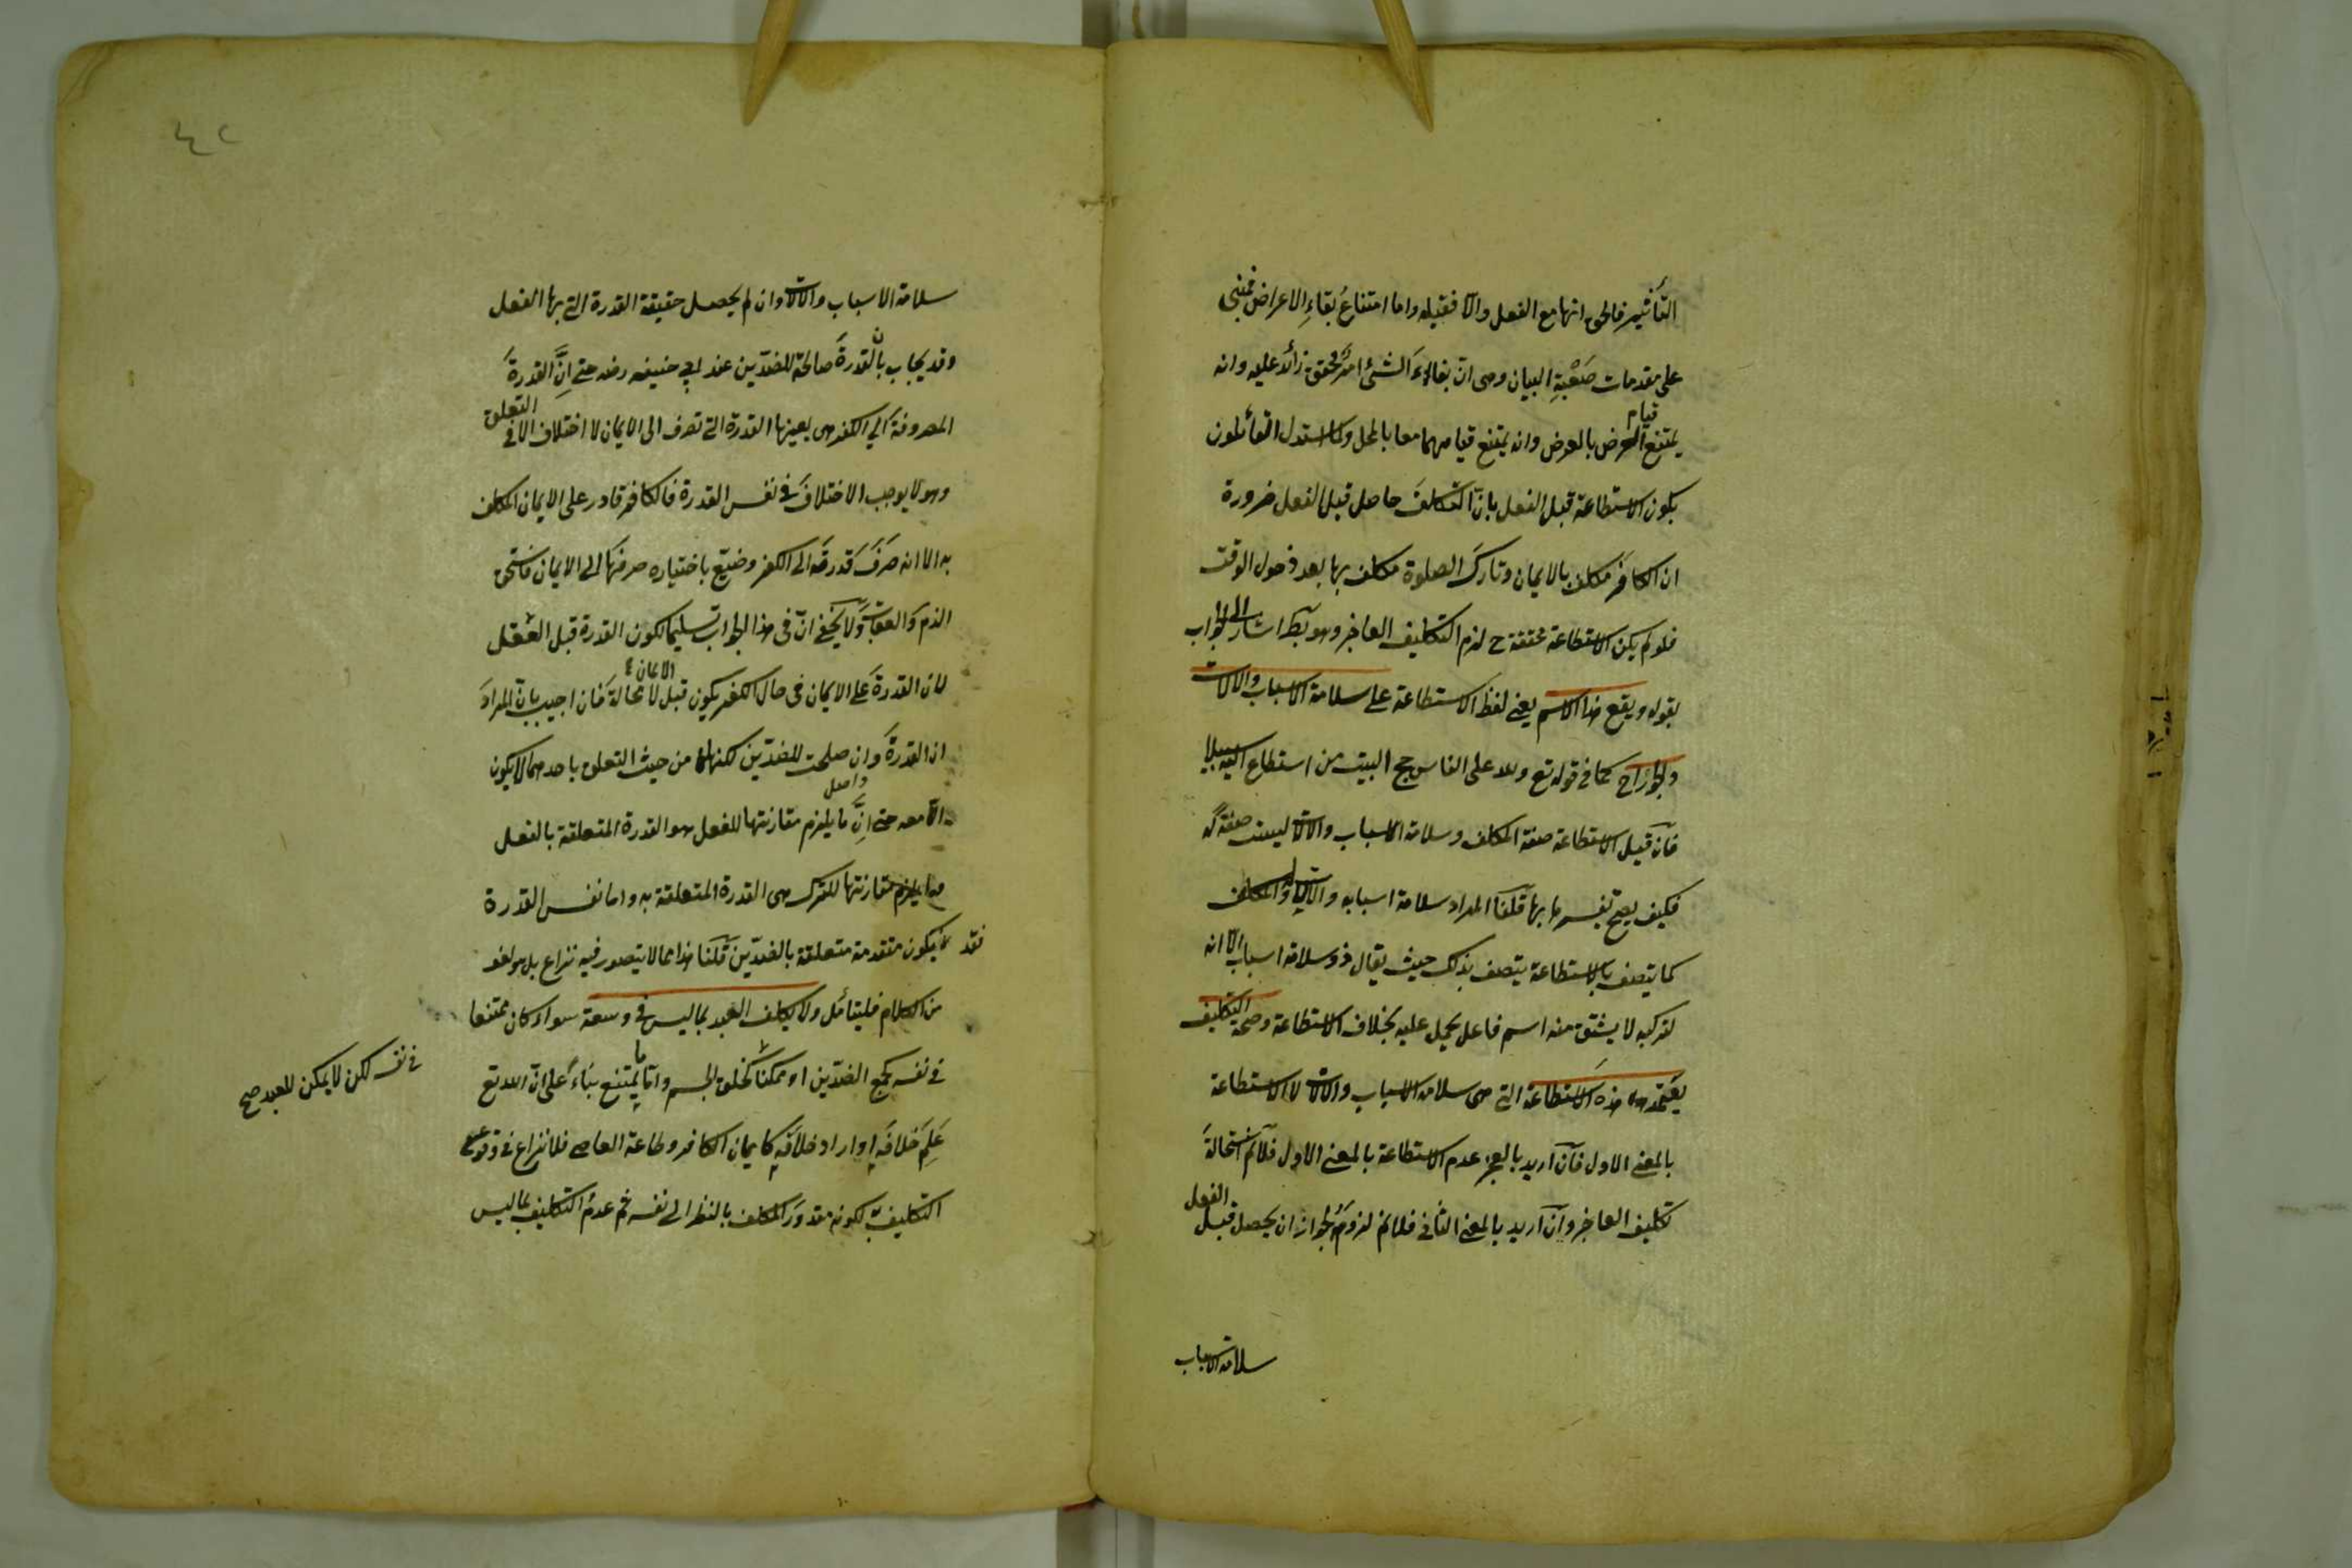 التأثير فالحق انها مع الفعل والا فقبله واما امتناع بقاء الاعراض فمبنى
على مقدمات صعبة البيان وهى ان بقاء الشئ امر محقق زائد عليه وانه
يمتنع قيام العرض بالعرض وانه يمتنع قيامهما معا بالمحل ولما استدل القائلون
بكون الاستطاعة قبل الفعل بان التكليف حاصل قبل الفعل ضرورة
ان الكافر مكلف بالايمان وتارك الصلوة مكلف بها بعد دخول الوقت
فلو لم يكن الاستطاعة محققة ح لزم التكليف العاجز وهو بط اشار الى الجواب
بقوله ويقع هذا الاسم يعنى لفظ الاستطاعة على سلامة الاسباب والالات
والجوارح كما فى قوله تع ولله على الناس حج البيت من استطاع اليه سبيلا
فان قيل الاستطاعة صفة المكلف وسلامة الاسباب والالات ليست صفة له
فكيف يصح تفسيرها بها قلنا المراد سلامة اسبابه والاته والمكلف
كما يتصف بالاستطاعة يتصف بذلك حيث يقال ذو سلامة اسباب الا انه
لتركبه لا يشتق منه اسم فاعل يحمل عليه بخلاف الاستطاعة وصحة التكليف
يعتمد هذه الاستطاعة التى هى سلامة الاسباب والالات لا الاستطاعة
بالمعنى الاول فان اريد بالعجز عدم الاستطاعة بالمعنى الاول فلا نم استحالة
تكليف العاجز وان اريد بالمعنى الثانى فلا نم لزومه لجواز ان يحصل قبل الفعل
سلامة الاسباب
٤٢
سلامة الاسباب والالات وان لم يحصل حقيقة القدرة التى بها الفعل
وقد يجاب بان القدرة صالحة للضدين عند ابى حنيفه رضه حتى ان القدرة
المصروفة الى الكفر هى بعينها القدرة التى تصرف الى الايمان لا اختلاف الا فى التعلق
وهو لا يوجب الاختلاف فى نفس القدرة فالكافر قادر على الايمان المكلف
به الا انه صرف قدرته الى الكفر وضيع باختياره صرفها الى الايمان فاستحق
الذم والعقاب ولا يخفى ان فى هذا الجواب تسليما لكون القدرة قبل الفعل
لان القدرة على الايمان فى حال الكفر يكون قبل الايمان لا محالة فان اجيب بان المراد
ان القدرة وان صلحت للضدين لكنها من حيث التعلق باحدهما لا يكون
الا معه حتى ان ما يلزم مقارنتها للفعل هو القدرة المتعلقة بالفعل
وما يلزم مقارنتها للترك هى القدرة المتعلقة به واما نفس القدرة
فقد يكون متقدمة متعلقة بالضدين قلنا هذا مما لا يتصور فيه نزاع بل هو لغو
من الكلام فليتأمل ولا يكلف العبد بما ليس فى وسعه سواء كان ممتنعا
فى نفسه كجمع الضدين او ممكنا كخلق الجسم واما ما يمتنع بناء على ان الله تع
فى نفسه لكن لا يمكن للعبد صح
علم خلافه او اراد خلافه كايمان الكافر وطاعة العاصى فلا نزاع فى وقوع
التكليف به لكونه مقدور المكلف بالنظر الى نفسه ثم عدم التكليف بما ليس